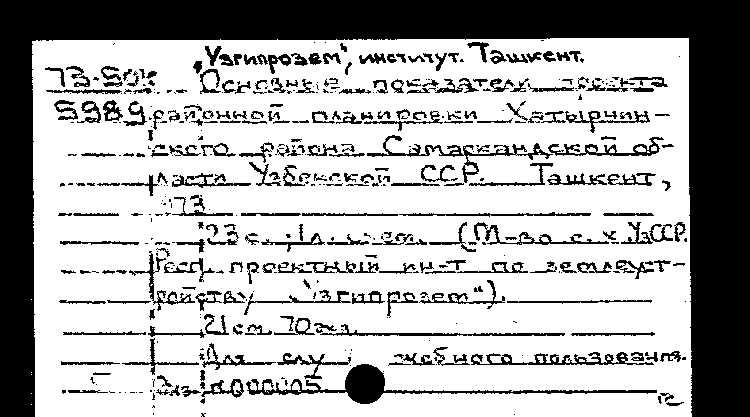 „Узгипрозем", институт. Ташкент.
73-50к Основные показатели проекта
5989 районной планировки Хатырчин-
ского района Самаркандской об-
ласти Узбекской ССР. Ташкент,
973
23 с.; 1 л. схем. (М-во с. х. УзССР.
Респ. проектный ин-т по землеуст-
ройству „Узгипрозем").
21 см. 70 экз.
Для служебного пользования.
Экз. №000005